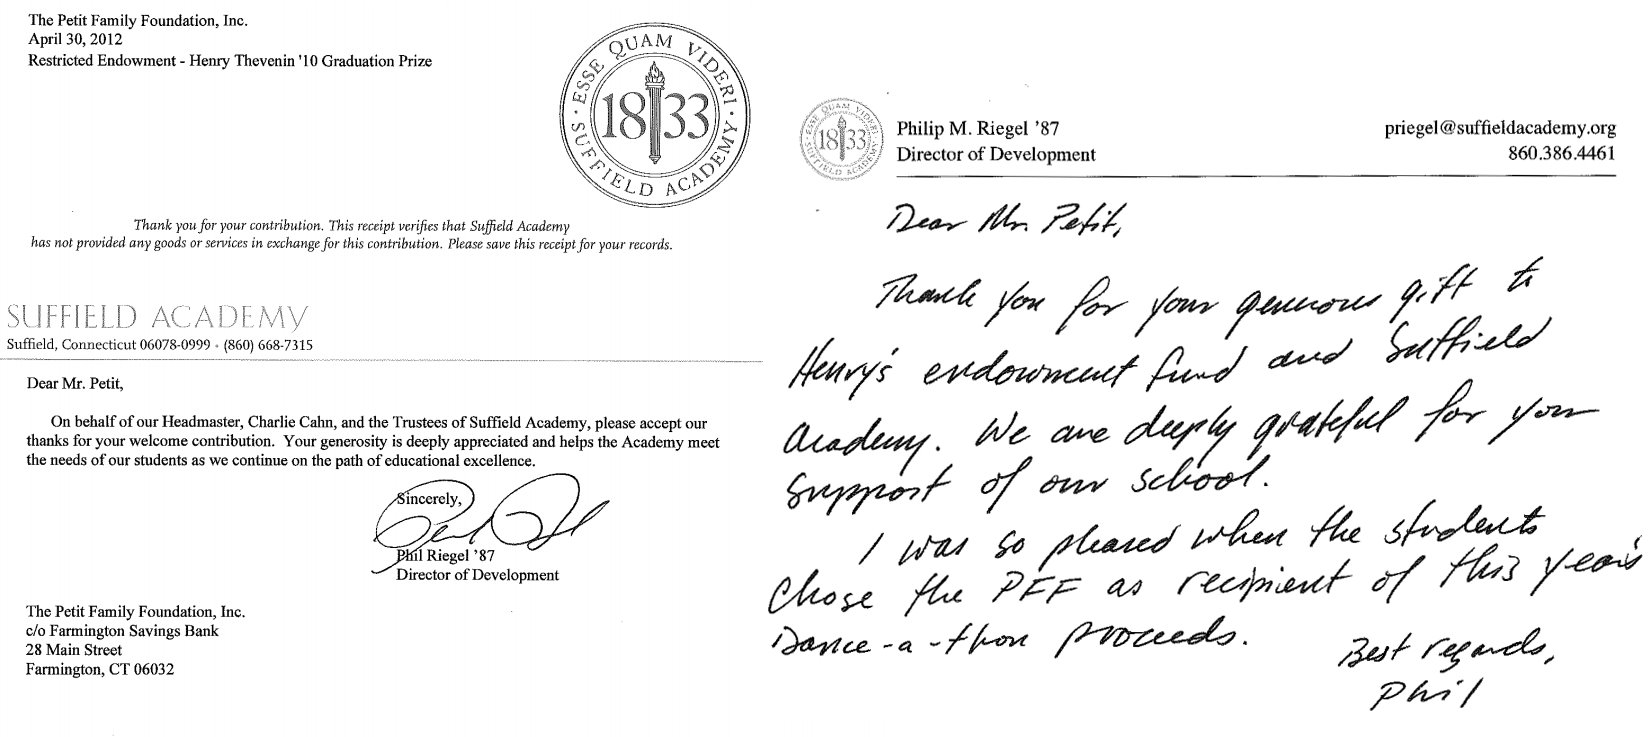 The Petit Family Foundation, Inc.
April 30, 2012
Restricted Endowment - Henry Thevenin '10 Graduation Prize
· ESSE QUAM VIDERI ·
SUFFIELD ACADEMY
1833
Thank you for your contribution. This receipt verifies that Suffield Academy
has not provided any goods or services in exchange for this contribution. Please save this receipt for your records.
SUFFIELD ACADEMY
Suffield, Connecticut 06078-0999 · (860) 668-7315
Dear Mr. Petit,
On behalf of our Headmaster, Charlie Cahn, and the Trustees of Suffield Academy, please accept our
thanks for your welcome contribution. Your generosity is deeply appreciated and helps the Academy meet
the needs of our students as we continue on the path of educational excellence.
Sincerely,
Phil Riegel '87
Director of Development
The Petit Family Foundation, Inc.
c/o Farmington Savings Bank
28 Main Street
Farmington, CT 06032
ESSE QUAM VIDERI
SUFFIELD ACADEMY
1833
Philip M. Riegel '87
Director of Development
priegel@suffieldacademy.org
860.386.4461
Dear Mr. Petit,
Thank you for your generous gift to
Henry's endowment fund and Suffield
Academy. We are deeply grateful for your
support of our school.
I was so pleased when the students
chose the PFF as recipient of this year's
Dance-a-thon proceeds.
Best regards,
Phil